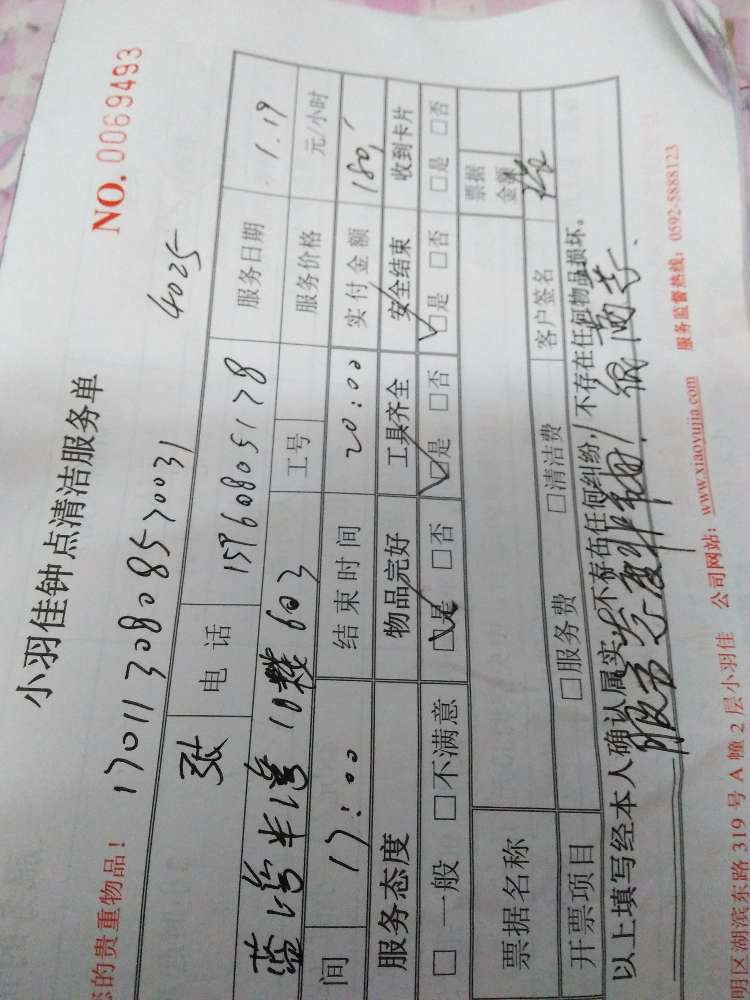 小羽佳钟点清洁服务单
NO. 0069493
您的贵重物品！ 1701130808570031 4025
张 电话 15960805178 服务日期 1.19
蓝湾半岛 10楼 603 工号 服务价格 元/小时
间 17:00 结束时间 20:00 实付金额 180,
服务态度 物品完好 工具齐全 安全结束 收到卡片
□ 一般 □不满意 □是 □否 □是 □否 □是 □否 □是 □否
票据名称 票据金额
开票项目 □服务费 □清洁费 客户签名
以上填写经本人确认属实，不存在任何纠纷，不存在任何物品损坏。
服务态度非常
明区湖滨东路 319 号 A 幢 2 层小羽佳 公司网站：www.xiaoyujia.com 服务监督热线：0592-5888123